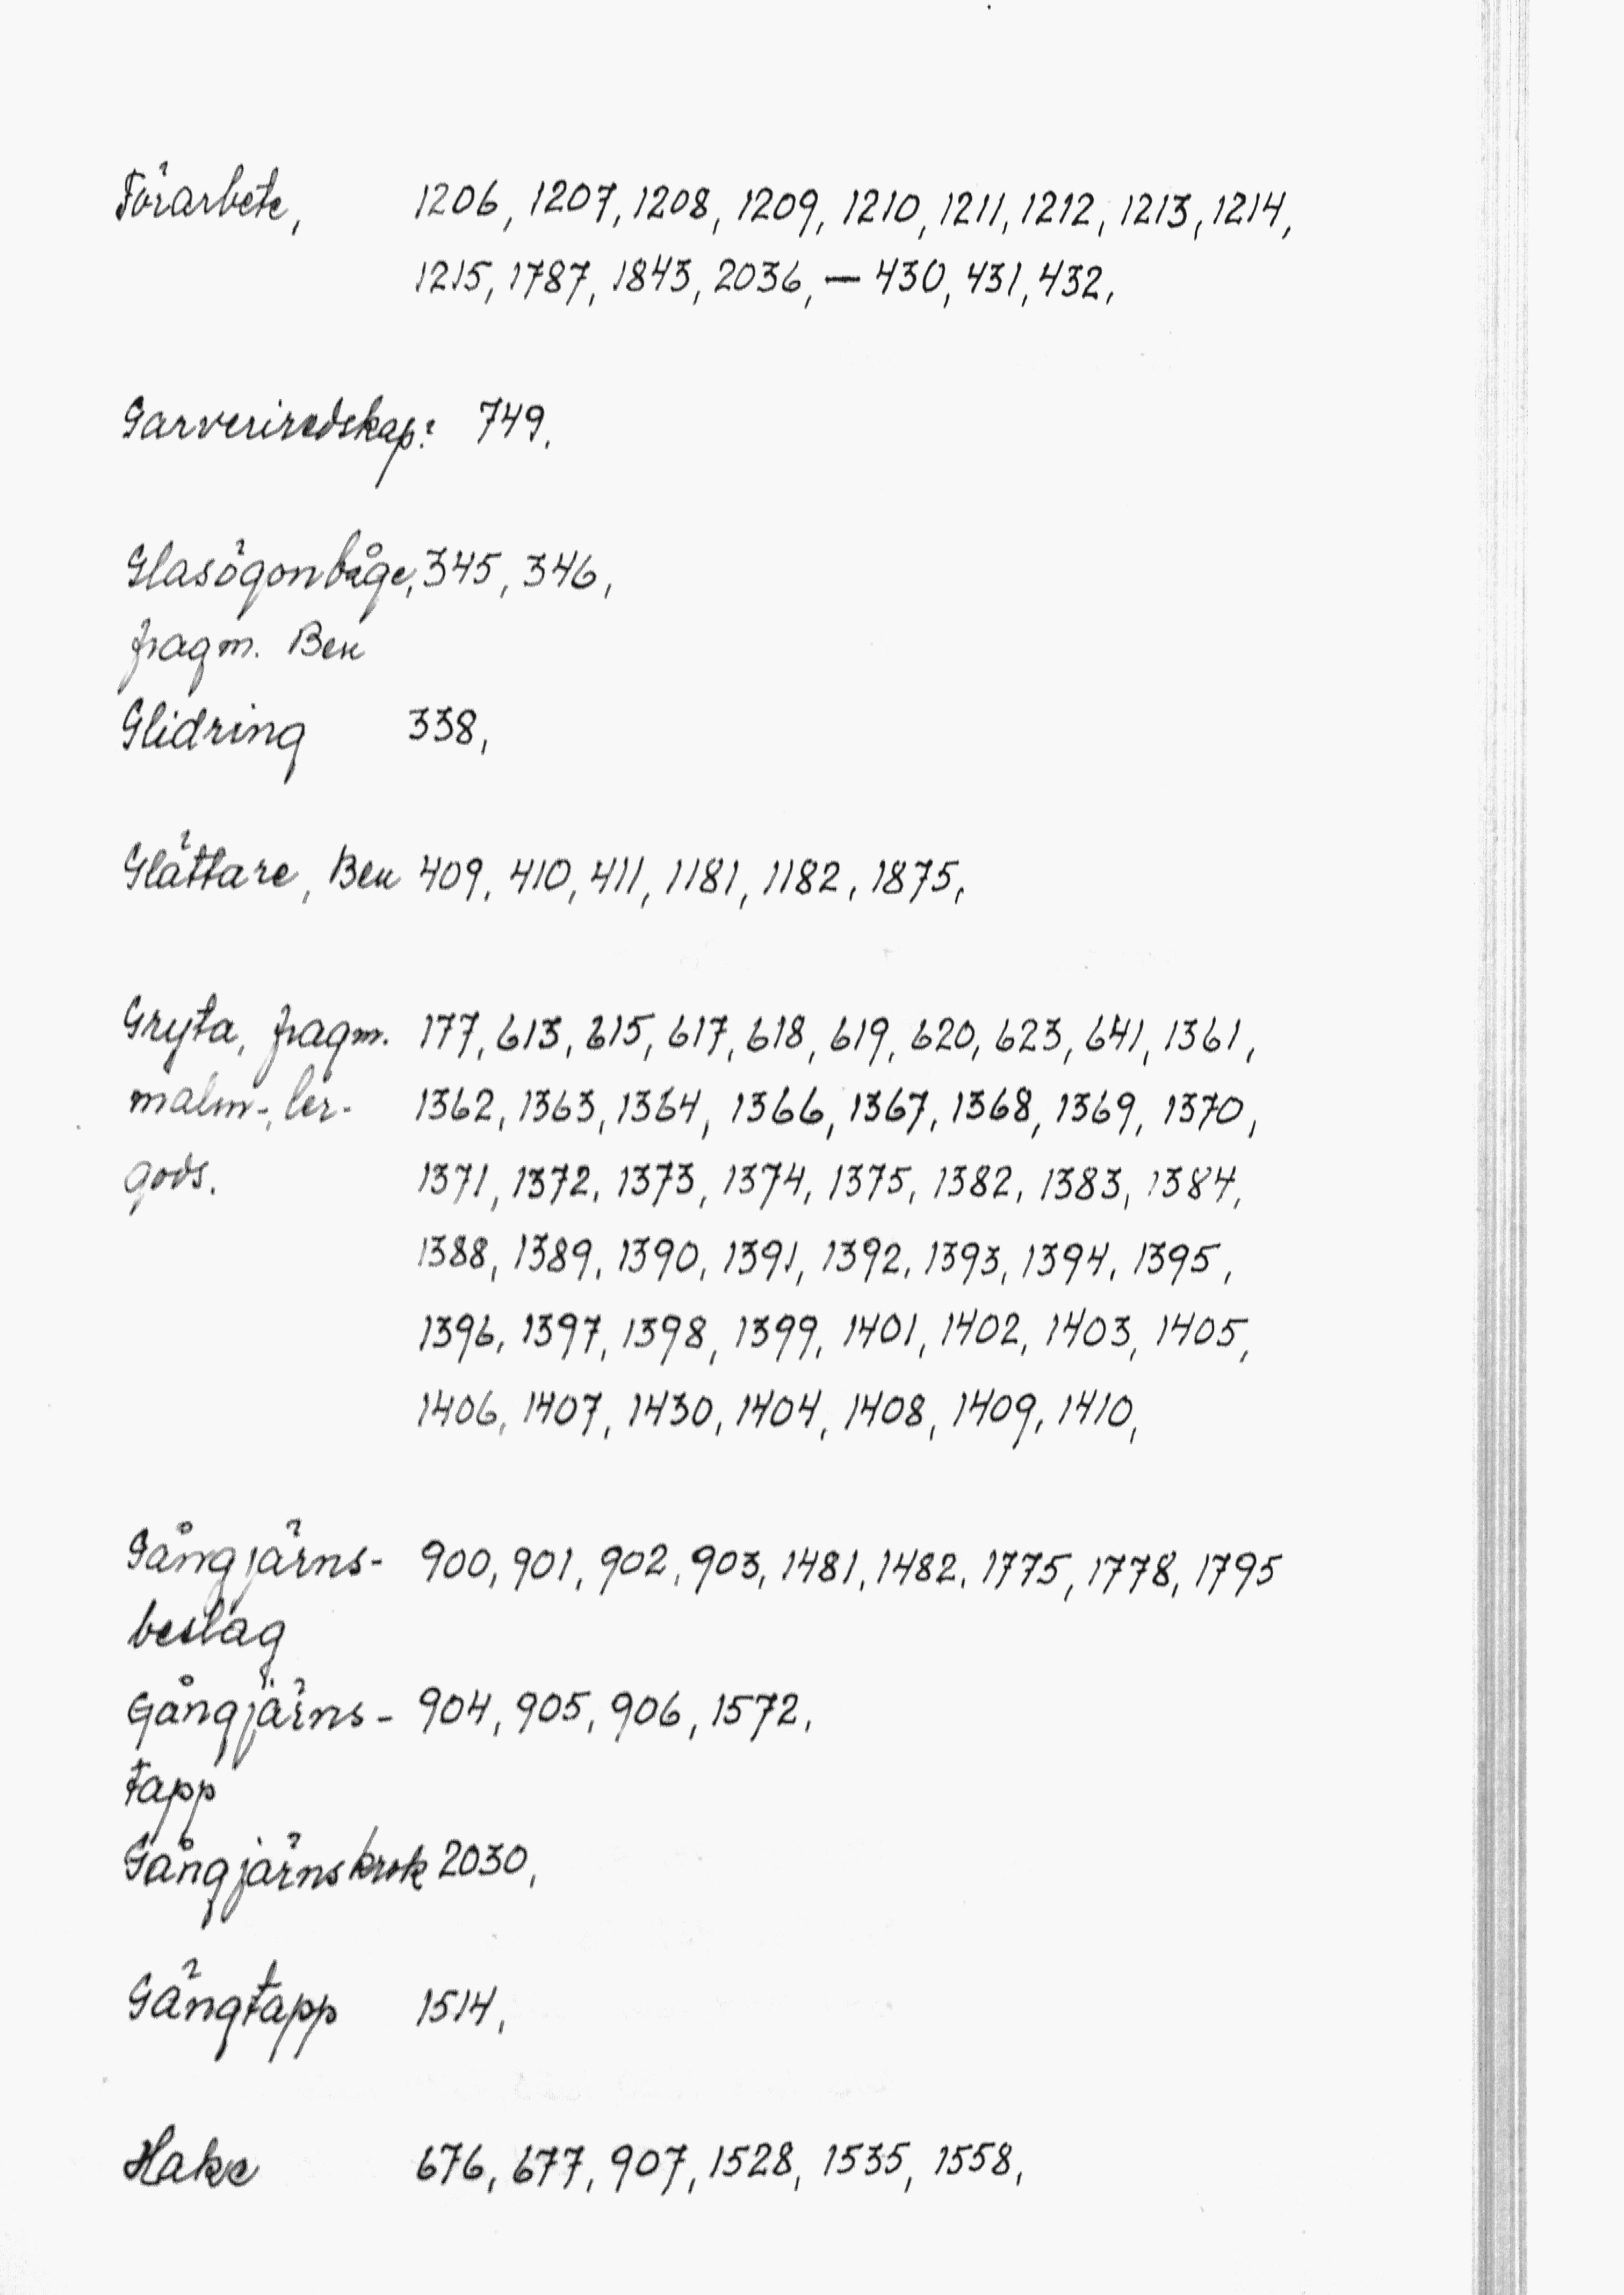 Förarbete, 1206, 1207, 1208, 1209, 1210, 1211, 1212, 1213, 1214,
1215, 1787, 1843, 2036, — 430, 431, 432,
Garveriredskap? 749,
Glasögonbåge, 345, 346,
fragm. Ben
Glidring 338,
Glättare, Ben 409, 410, 411, 1181, 1182, 1875,
Gryta, fragm. 177, 613, 615, 617, 618, 619, 620, 623, 641, 1361,
malm-, ler- 1362, 1363, 1364, 1366, 1367, 1368, 1369, 1370,
gods. 1371, 1372, 1373, 1374, 1375, 1382, 1383, 1384,
1388, 1389, 1390, 1391, 1392, 1393, 1394, 1395,
1396, 1397, 1398, 1399, 1401, 1402, 1403, 1405,
1406, 1407, 1430, 1404, 1408, 1409, 1410,
Gångjärns- 900, 901, 902, 903, 1481, 1482, 1775, 1778, 1795
beslag
Gångjärns- 904, 905, 906, 1572,
tapp
Gångjärnskrok 2030,
Gängtapp 1514,
Hake 676, 677, 907, 1528, 1535, 1558,